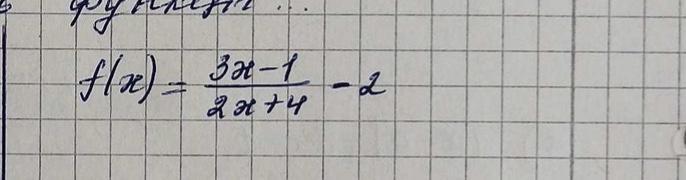 f(x) = \frac{3x-1}{2x+4} - 2